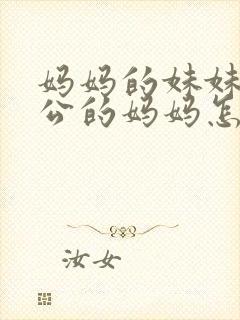 妈妈的妹妹
公的妈妈怎
汝女